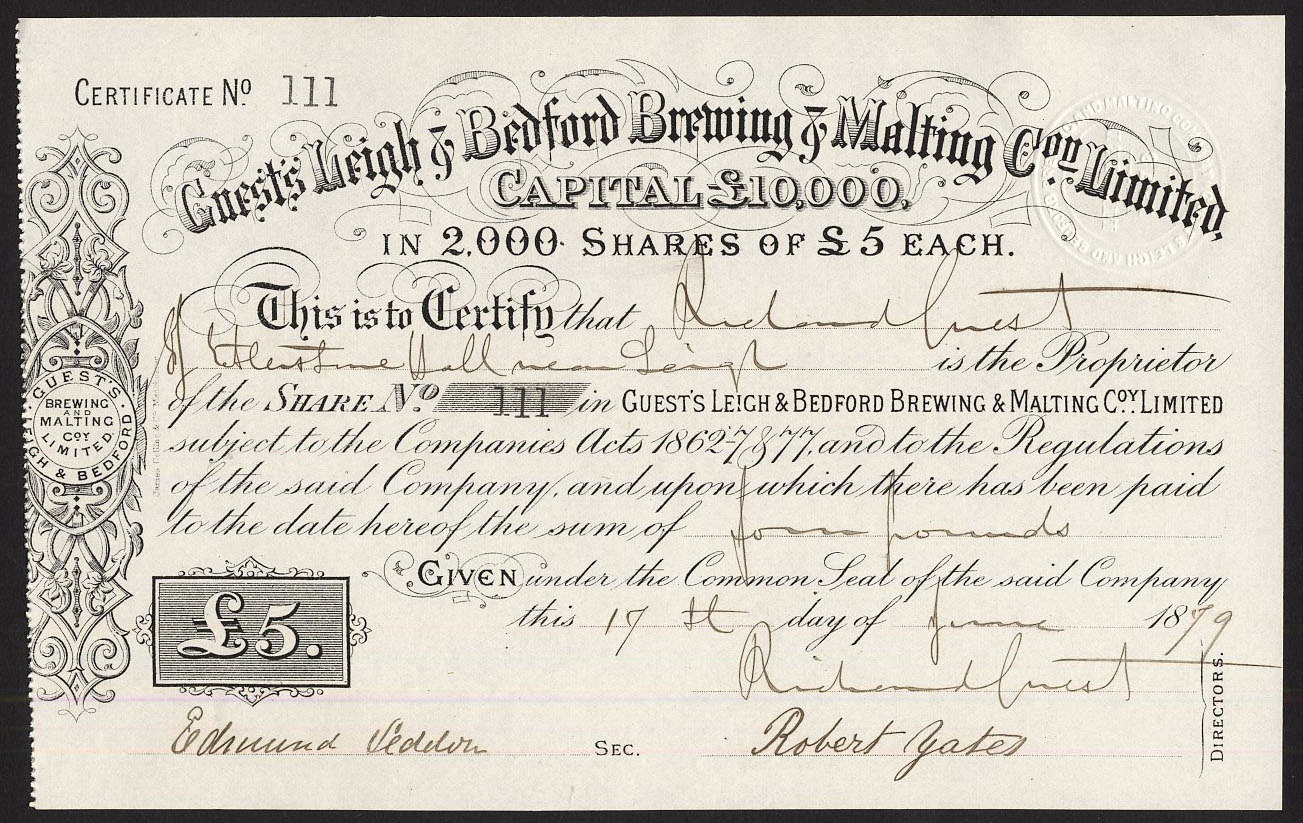 CERTIFICATE No. 111
Guest's Leigh & Bedford Brewing & Malting Coy. Limited,
CAPITAL £10,000,
IN 2,000 SHARES OF £5 EACH.
This is to Certify that Richard Guest
of Etherstone Hall near Leigh is the Proprietor
of the SHARE No. 111 in GUEST'S LEIGH & BEDFORD BREWING & MALTING COY. LIMITED
subject to the Companies Acts 1862 & 77, and to the Regulations
of the said Company, and upon which there has been paid
to the date hereof the sum of four pounds
GIVEN under the Common Seal of the said Company
this 17th day of June 1879
£5.
Richard Guest
Edmund Seddon SEC. Robert Yates
DIRECTORS.
GUEST'S
BREWING
AND
MALTING
COY
LIMITED
LEIGH & BEDFORD